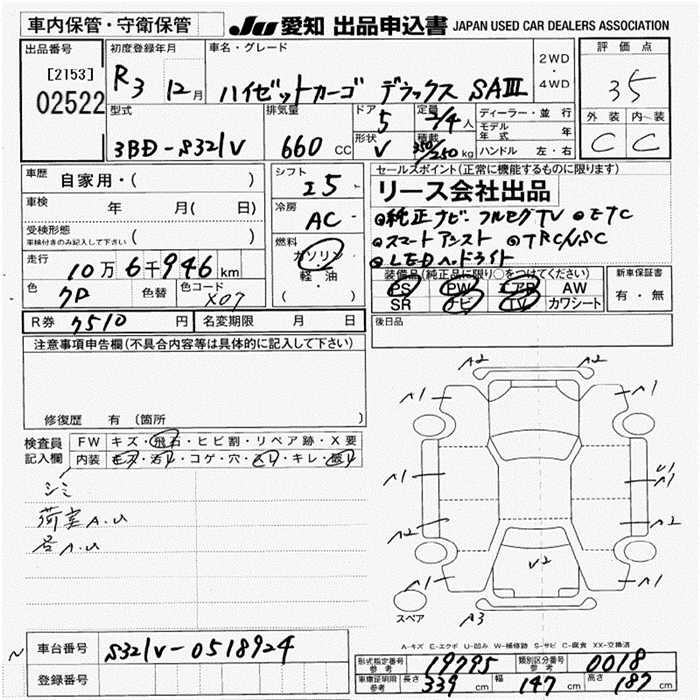 車内保管・守衛保管
JU 愛知 出品申込書 JAPAN USED CAR DEALERS ASSOCIATION
出品番号
[2153]
02522
初度登録年月
R3 12月
車名・グレード
ハイゼットカーゴ デラックス SAIII
2WD
・
4WD
評価点
3.5
外装 内装
C C
型式
3BD-S321V
排気量
660 CC
ドア
5
形状
V
定員
2/4 人
積載
350/250 kg
ディーラー・並行
モデル年式 年
ハンドル 左・右
車歴
自家用・( )
車検
年 月( 日)
受検形態
車検付きのみ記入して下さい ( )
走行
10万6千946km
色
クロ
色替
色コード
X07
シフト
I5
冷房
AC
燃料
ガソリン
軽・油
( )
セールスポイント(正常に機能するものに限ります)
リース会社出品
◎純正ナビ・フルセグTV ◎ETC
◎スマートアシスト ◎TRC/VSC
◎LEDヘッドライト
装備品(純正品に限り○をつけてください)
PS PW エアB AW
SR ナビ TV カワシート
新車保証書
有・無
後日品
R券 7510 円
名変期限 月 日
注意事項申告欄(不具合内容等は具体的に記入して下さい)
修復歴 有(箇所 )
検査員記入欄
FW キズ・飛石・ヒビ割・リペア跡・X要
内装 キズ・汚レ・コゲ・穴・スレ・キレ・腐レ
シミ
荷室A.U
各A.U
A2 A2
A1 A1
A1 U1
A1
A2 A2
A1 U2 A1
スペア A3
A-キズ E-エクボ U-凹み W-補修跡 S-サビ C-腐食 XX-交換済
車台番号
S321V-0518924
登録番号
形式指定番号 参考 19795
類別区分番号 参考 0018
車庫証明用 参考 長さ 339 cm 幅 147 cm 高さ 187 cm